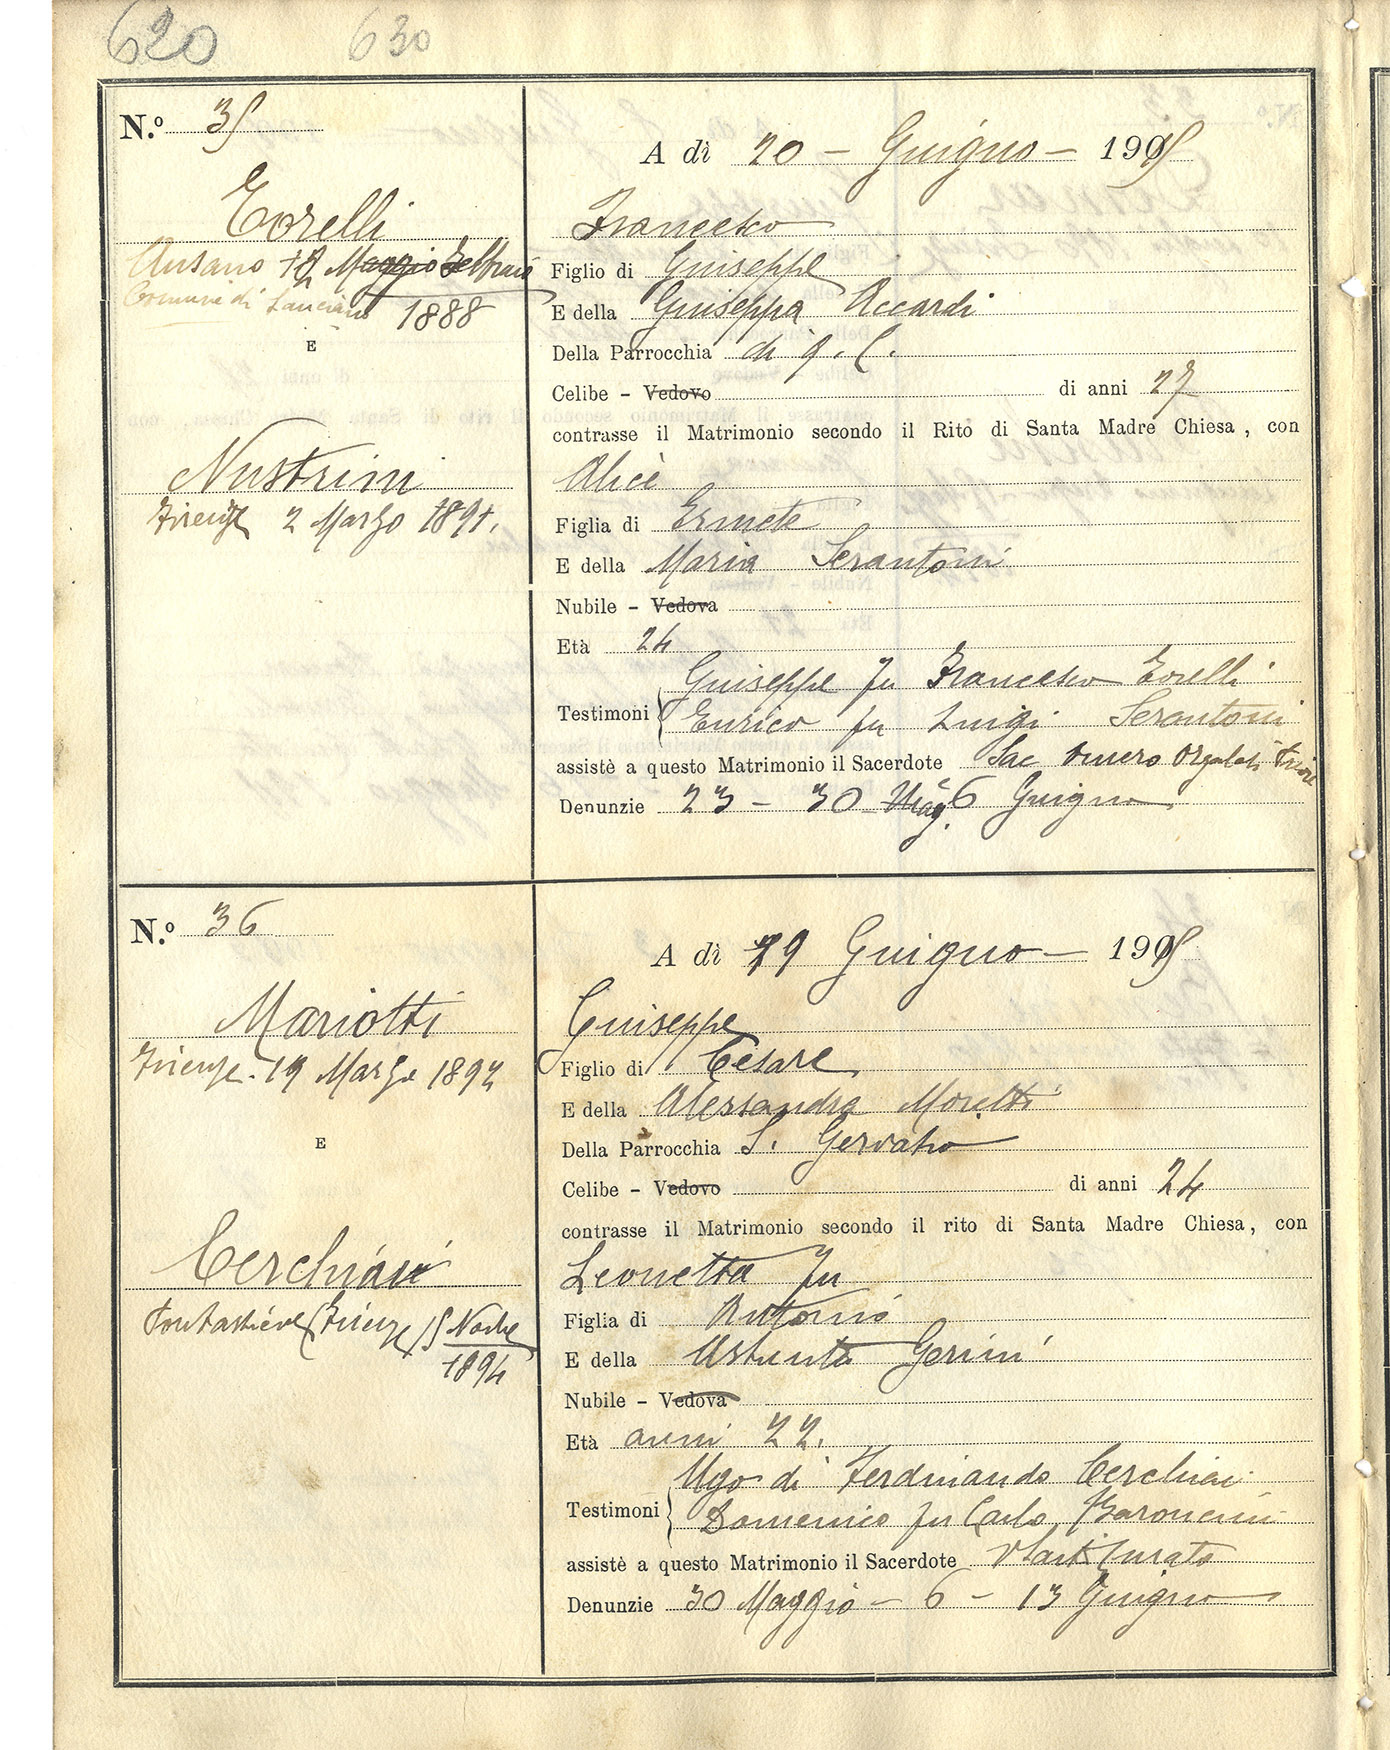 620 630
N.º 35
A dì 20 - Giugno - 1915
Torelli
Francesco
Figlio di Giuseppe
1888
E della Giuseppa Accardi
E
Della Parrocchia di q. C.
Celibe - Vedovo di anni 27
contrasse il Matrimonio secondo il Rito di Santa Madre Chiesa, con
Nustrini
Alice
Firenze 2 Marzo 1891.
Figlia di Ermete
E della Maria Serantoni
Nubile - Vedova
Età 24
Testimoni Giuseppe fu Francesco Torelli
Enrico fu Luigi Serantoni
assistè a questo Matrimonio il Sacerdote Sac
Denunzie 23 - 30 Mag. e 6 Giugno
N.º 36
A dì 19 Giugno - 1915
Mariotti
Giuseppe
Firenze - 19 Marzo 1892
Figlio di Cesare
E della Alessandra Moretti
E
Della Parrocchia S. Gervasio
Celibe - Vedovo di anni 24
contrasse il Matrimonio secondo il rito di Santa Madre Chiesa, con
Cerchiai
Leonetta fu
Figlia di Antonio
Pontassieve (Firenze) 15 Nobre
1894
E della Assunta Gerini
Nubile - Vedova
Età anni 22.
Testimoni Ugo di Ferdinando Cerchiai
Domenico fu Carlo Baroncini
assistè a questo Matrimonio il Sacerdote Curato
Denunzie 30 Maggio - 6 - 13 Giugno